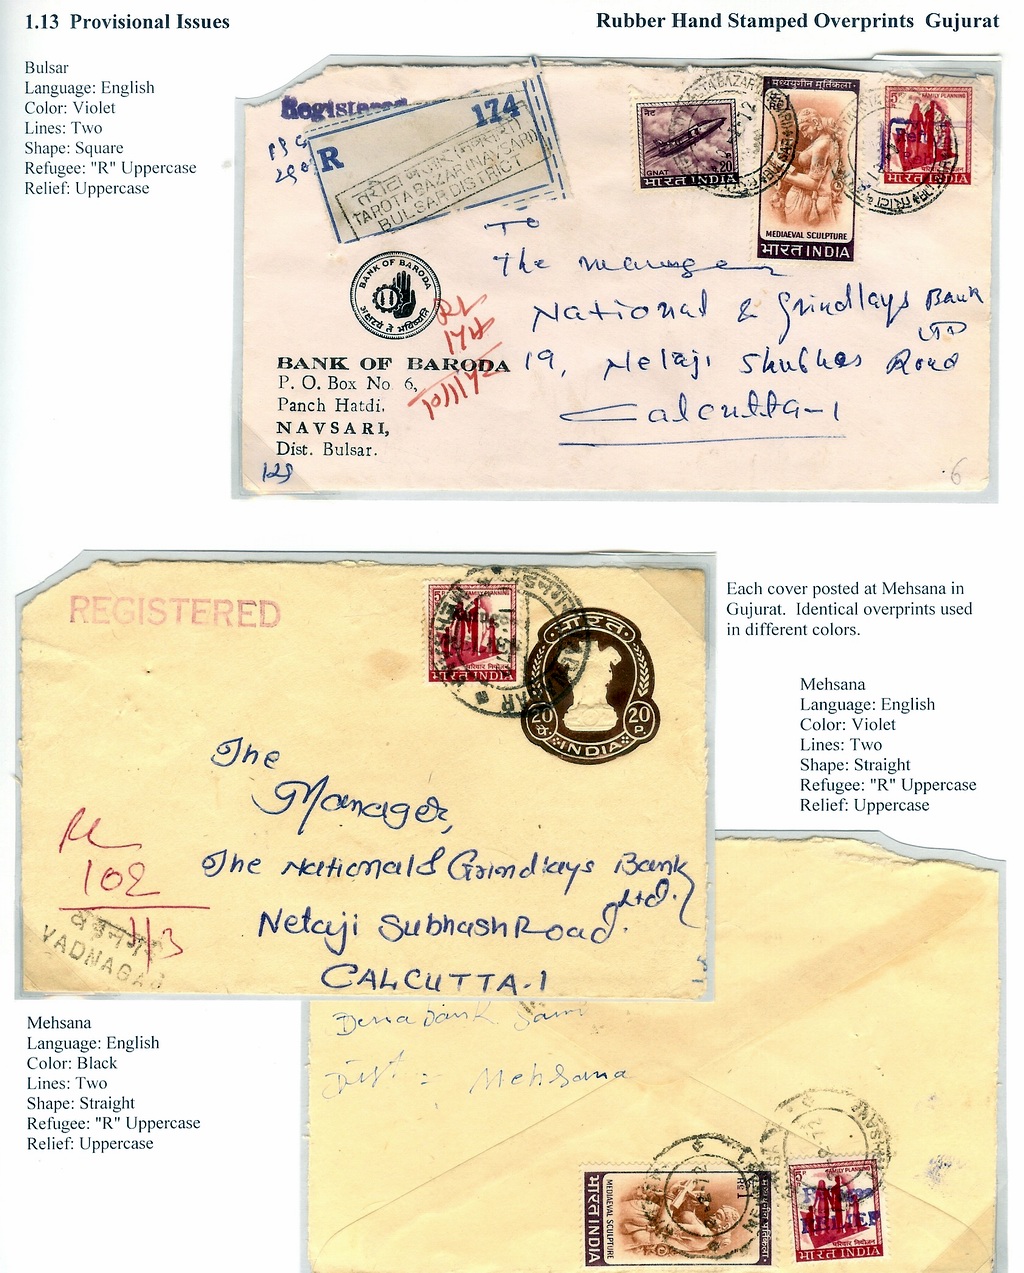 1.13 Provisional Issues
Rubber Hand Stamped Overprints Gujurat
Bulsar
Language: English
Color: Violet
Lines: Two
Shape: Square
Refugee: "R" Uppercase
Relief: Uppercase
Registered
R 174
TAROTA BAZAR (NAVSARI)
BULSAR DISTRICT
नेट
GNAT
भारत INDIA
मध्ययुगीन मूर्तिकला
MEDIAEVAL SCULPTURE
भारत INDIA
5P FAMILY PLANNING
परिवार नियोजन
भारत INDIA
BANK OF BARODA
BANK OF BARODA
P. O. Box No. 6,
Panch Hatdi.
NAVSARI,
Dist. Bulsar.
129
RL
174
10/11/72
To
The manager
National & Grindlays Bank
LTD
19, Netaji Shubhas Road
Calcutta-1
6
REGISTERED
5P FAMILY PLANNING
परिवार नियोजन
भारत INDIA
भारत
20 पै. 20 P.
INDIA
The
Manager,
The National & Grindlays Bank
Ltd.
Netaji Subhash Road.
CALCUTTA-1
RL
102
113
वडनगर
VADNAGAR
Each cover posted at Mehsana in
Gujurat. Identical overprints used
in different colors.
Mehsana
Language: English
Color: Violet
Lines: Two
Shape: Straight
Refugee: "R" Uppercase
Relief: Uppercase
Mehsana
Language: English
Color: Black
Lines: Two
Shape: Straight
Refugee: "R" Uppercase
Relief: Uppercase
Dena bank Sami
Dist = Mehsana
भारत INDIA
MEDIAEVAL SCULPTURE
Re 1
मध्ययुगीन मूर्तिकला
5P FAMILY PLANNING
RELIEF
परिवार नियोजन
भारत INDIA